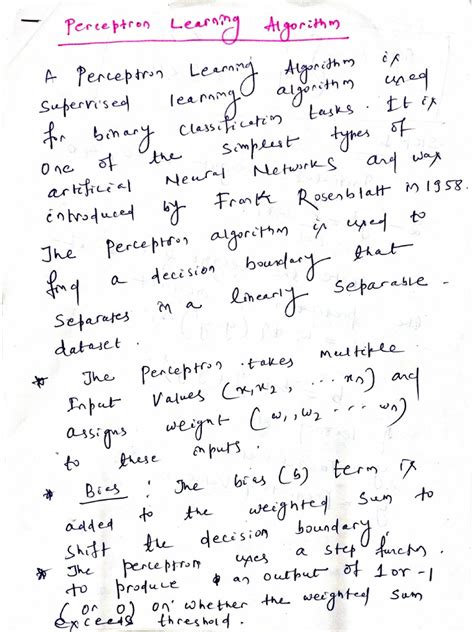 Perceptron Learning Algorithm
A Perceptron Learning Algorithm is
supervised learning algorithm used
for binary classification tasks. It is
one of the simplest types of
artificial Neural Networks and was
introduced by Frank Rosenblatt in 1958.
The perceptron algorithm is used to
find a decision boundary that
separates in a linearly separable
dataset.
* The Perceptron takes multiple
Input Values (x1, x2, ... xn) and
assigns weight (w1, w2 ... wn)
to these inputs.
* Bias : The bias (b) term is
added to the weighted sum to
shift the decision boundary
* The perceptron uses a step function
to produce an output of 1 or -1
(or 0) on whether the weighted sum
exceeds threshold.